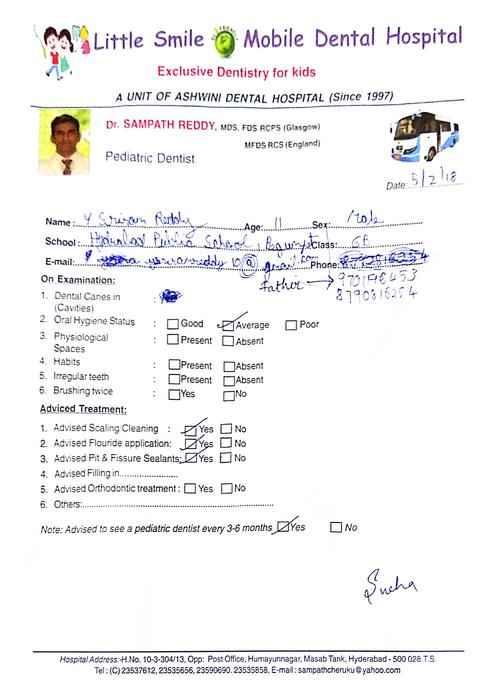 Little Smile Mobile Dental Hospital
Exclusive Dentistry for kids
A UNIT OF ASHWINI DENTAL HOSPITAL (Since 1997)
Dr. SAMPATH REDDY, MDS, FDS RCPS (Glasgow)
MFDS RCS (England)
Pediatric Dentist
Date 5/2/18
Name: Y Sriram Reddy Age: 11 Sex: Male
School: Hyderabad Public School, Begumpet Class: 6F
E-mail: reddy 10 @ gmail.com Phone:
Father → 
On Examination:
8790816254
1. Dental Caries in (Cavities) :
2. Oral Hygiene Status : Good Average Poor
3. Physiological Spaces : Present Absent
4. Habits : Present Absent
5. Irregular teeth : Present Absent
6. Brushing twice : Yes No
Adviced Treatment:
1. Advised Scaling Cleaning : Yes No
2. Advised Flouride application: Yes No
3. Advised Pit & Fissure Sealants: Yes No
4. Advised Filling in....................
5. Advised Orthodontic treatment : Yes No
6. Others:..................................................................
Note: Advised to see a pediatric dentist every 3-6 months Yes No
Hospital Address:-H.No. 10-3-304/13, Opp: Post Office, Humayunnagar, Masab Tank, Hyderabad - 500 028 T.S.
Tel : (C) 23537612, 23535656, 23590690. 23535858. E-mail : sampathcheruku@yahoo.com